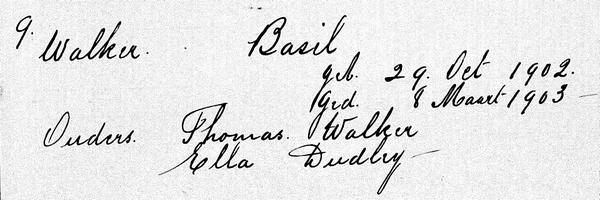 9. Walker. Basil
geb. 29. Oct 1902.
Ged. 8 Maart 1903 –
Ouders. Thomas. Walker
Ella Dudley –